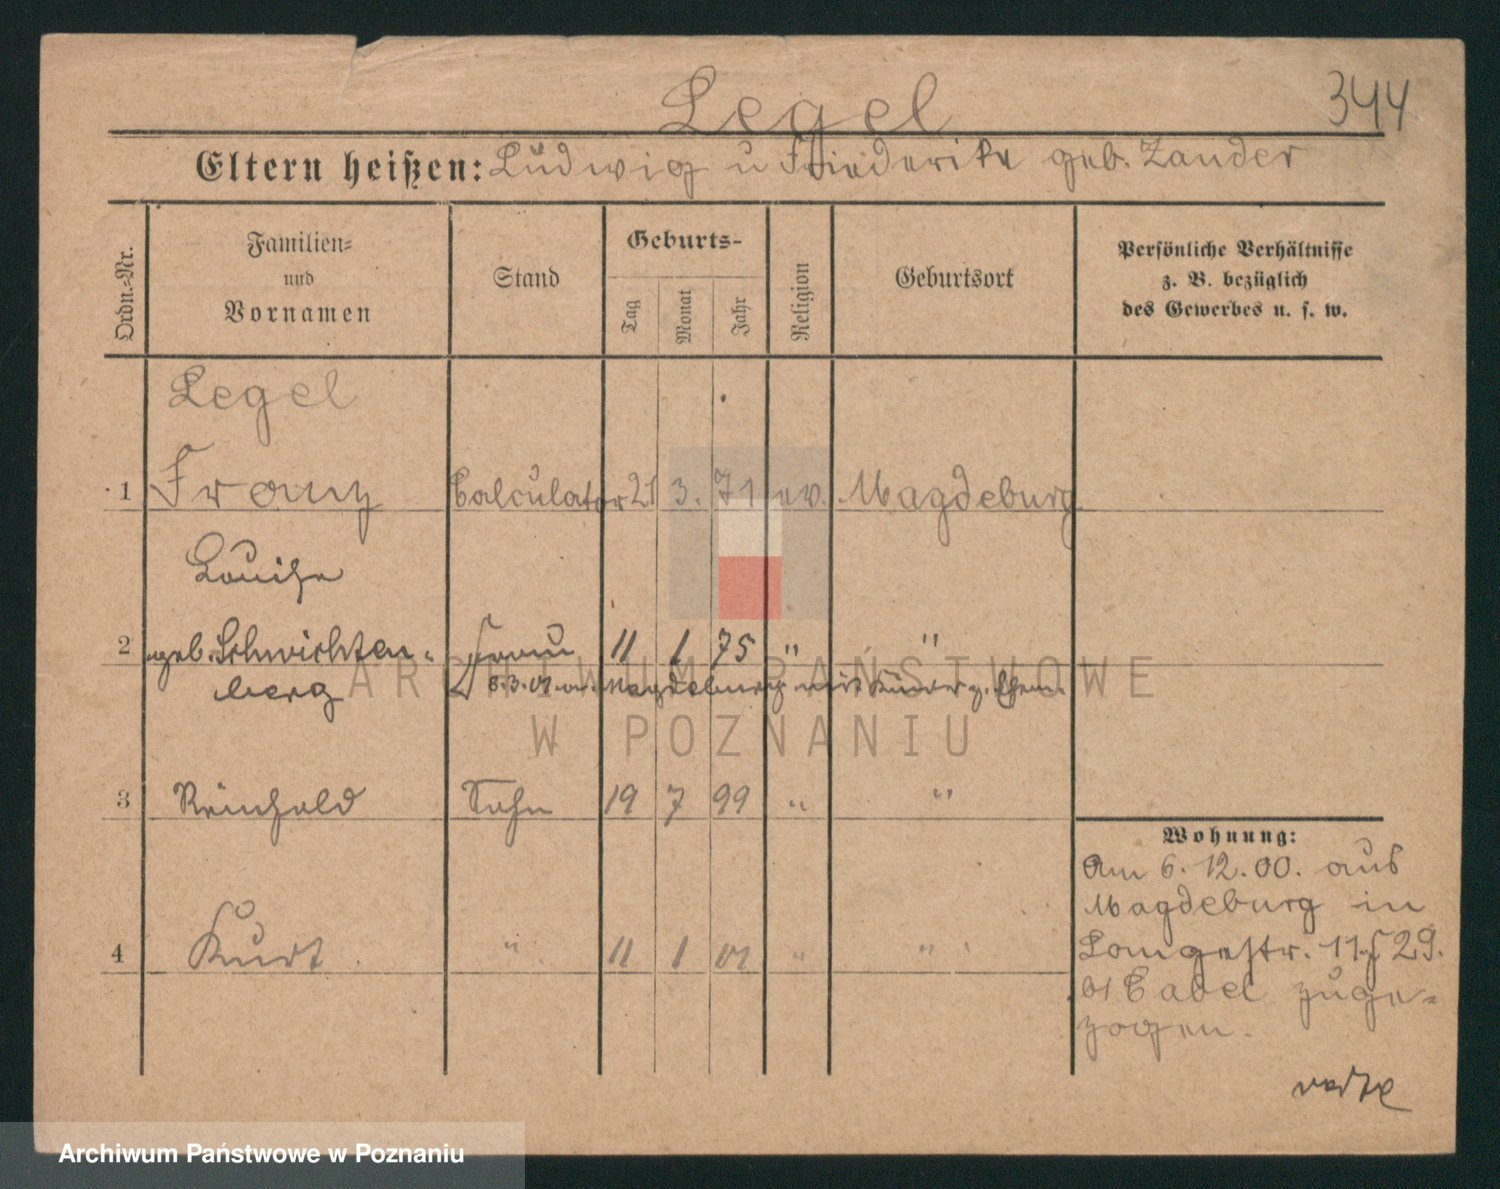 Legel
344
Eltern heißen: Ludwig u Friederike geb. Zander
Ordn.-Nr.
Familien-
und
Vornamen
Stand
Geburts-
Tag
Monat
Jahr
Religion
Geburtsort
Persönliche Verhältnisse
z. B. bezüglich
des Gewerbes u. s. w.
Legel
1 Franz Calculator 21 3. 71 ev. Magdeburg
Louise
2 geb. Schwichten- Frau 11 1 75 " "
berg 8.3.01 Magdeburg mit
3 Reinhold Sohn 19 7 99 " "
Wohnung:
Am 6. 12. 00. aus
Magdeburg in
Langestr. 11 29.
4 Kurt " 11 1 01 " "
b/ Gabel zuge-
zogen.
ARCHIWUM PAŃSTWOWE
W POZNANIU
Archiwum Państwowe w Poznaniu